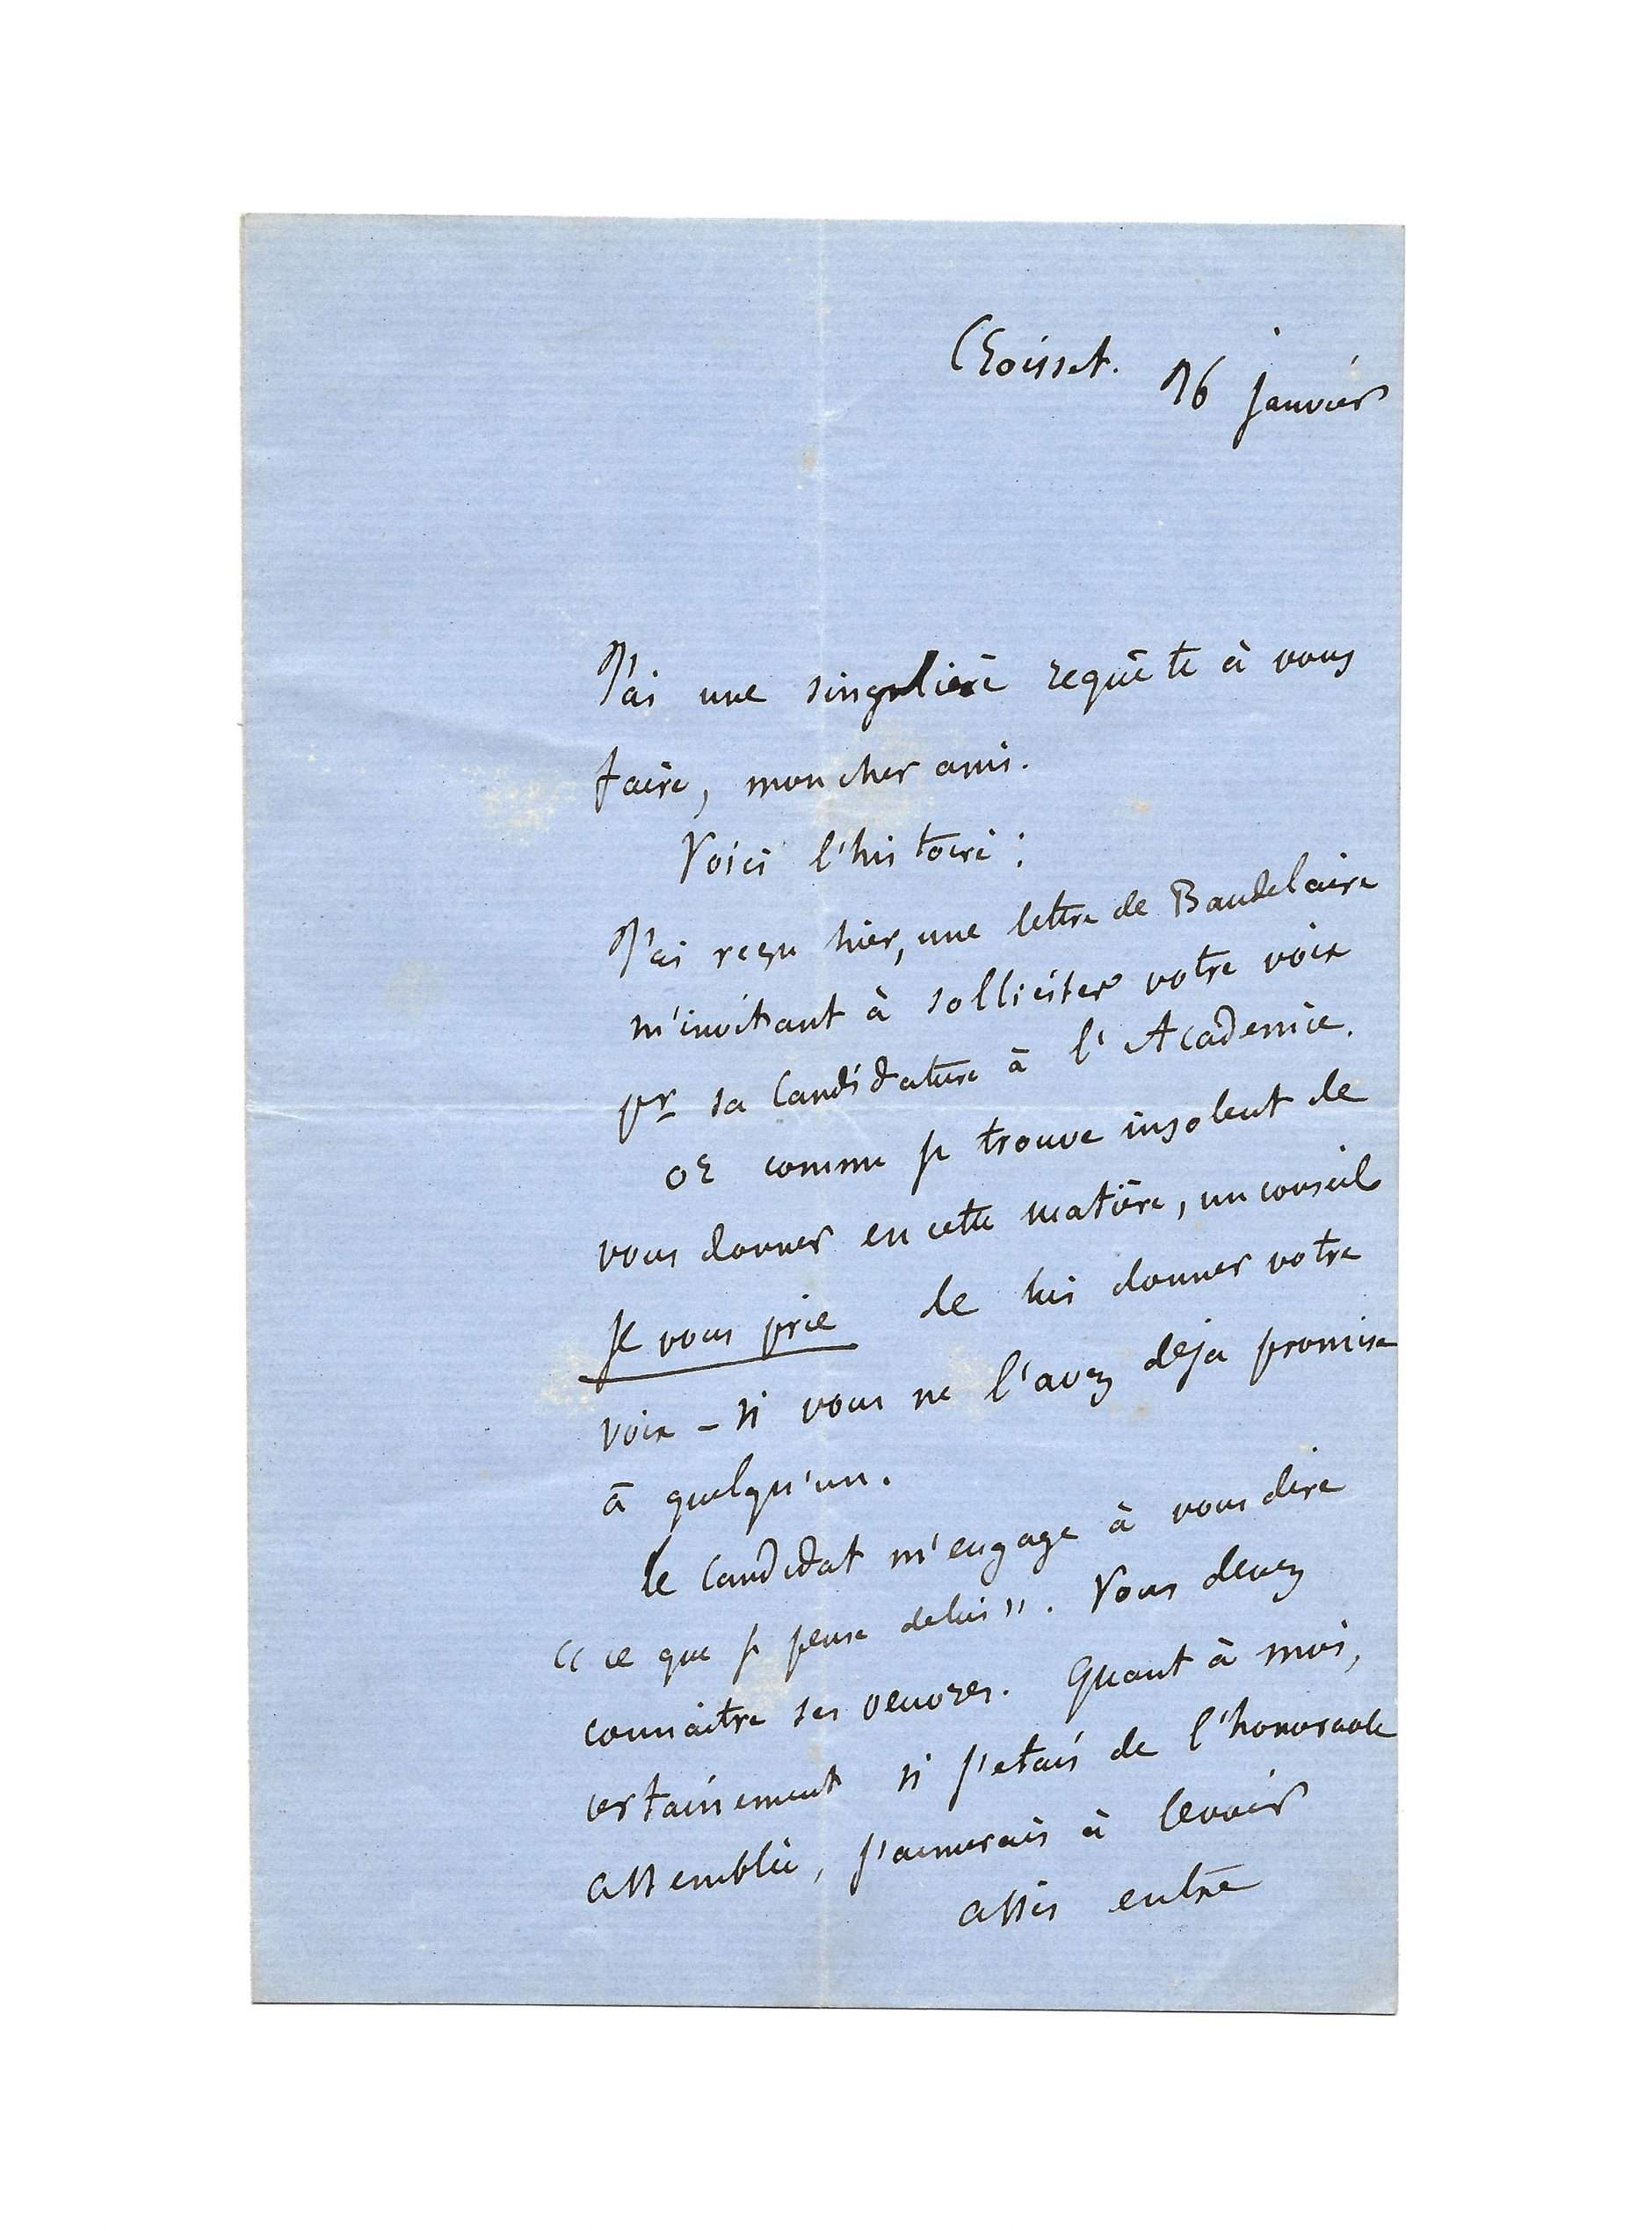 Croisset. 26 janvier
J'ai une singulière requête à vous
faire, mon cher ami.
Voici l'histoire :
J'ai reçu hier, une lettre de Baudelaire
m'invitant à solliciter votre voix
pr sa candidature à l'Academie.
or comme je trouve insolent de
vous donner en cette matière, un conseil
je vous prie de lui donner votre
voix – si vous ne l'avez deja promise
à quelqu'un.
le candidat m'engage à vous dire
« ce que je pense de lui ». Vous devez
connaitre ses oeuvres. Quant à moi,
certainement si j'etais de l'honorable
assemblée, j'aimerais à le voir
assis entre